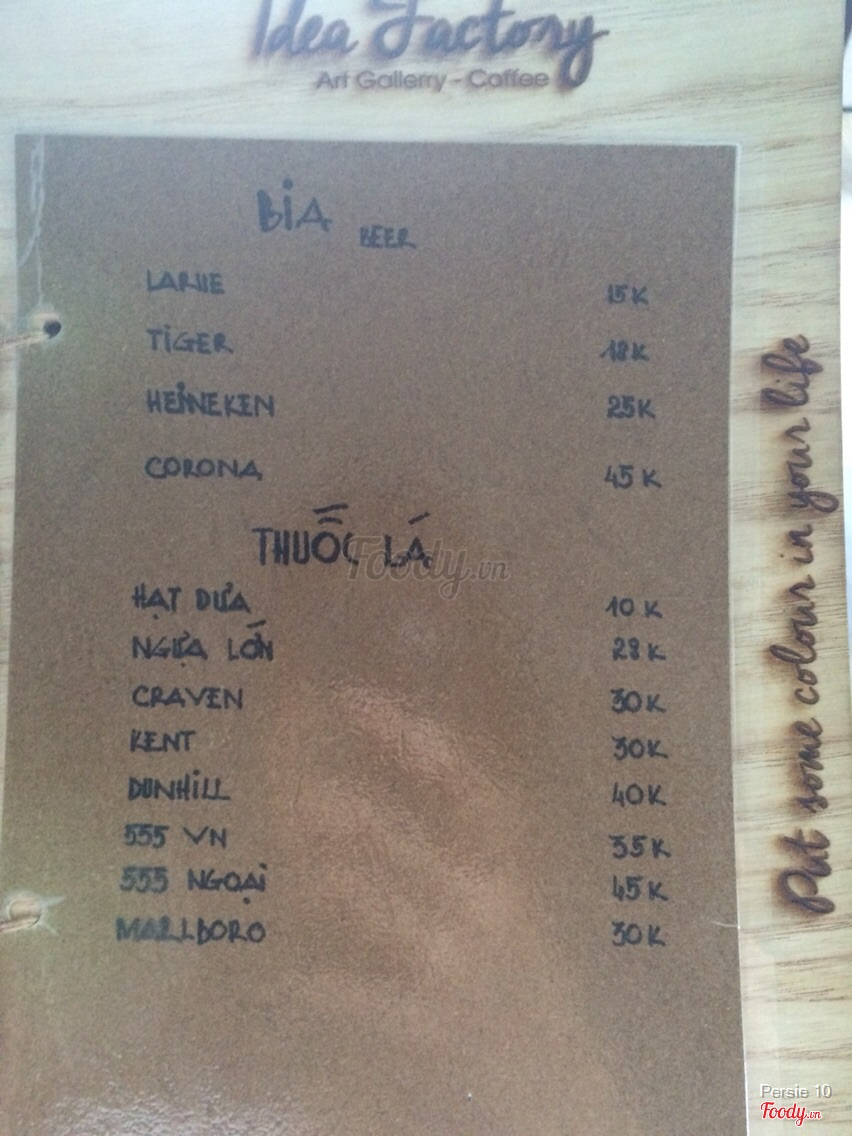 Idea Factory
Art Gallerry - Coffee
BIA BEER
LARUE 15K
TIGER 18K
HEINEKEN 25K
CORONA 45K
THUỐC LÁ
HẠT DƯA 10K
NGỰA LỚN 28K
CRAVEN 30K
KENT 30K
DUNHILL 40K
555 VN 35K
555 NGOẠI 45K
MARLBORO 30K
Put some colour in your life
Foody.vn
Persie 10
Foody.vn